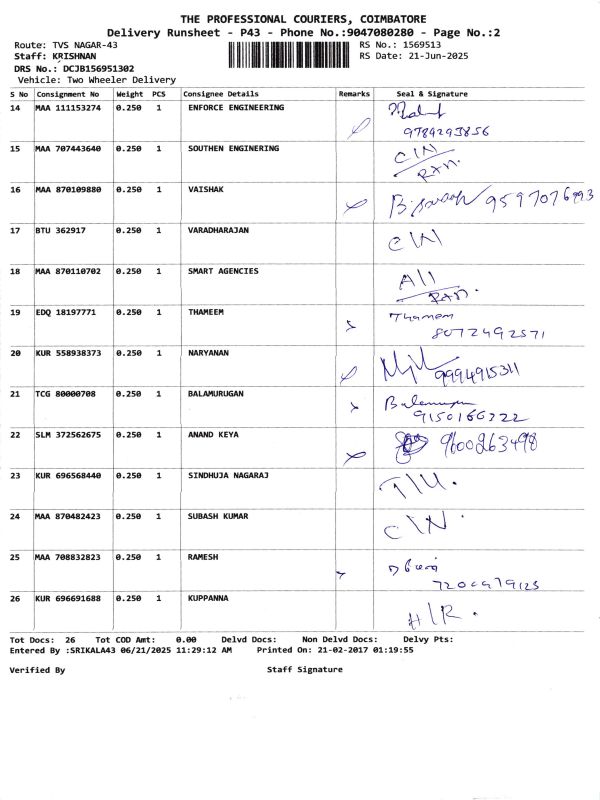 THE PROFESSIONAL COURIERS, COIMBATORE
Delivery Runsheet - P43 - Phone No.:9047080280 - Page No.:2
Route: TVS NAGAR-43 RS No.: 1569513
Staff: KRISHNAN RS Date: 21-Jun-2025
DRS No.: DCJB156951302
Vehicle: Two Wheeler Delivery
S No Consignment No Weight PCS Consignee Details Remarks Seal & Signature
14 MAA 111153274 0.250 1 ENFORCE ENGINEERING
9789293856
15 MAA 707443640 0.250 1 SOUTHEN ENGINERING C\N
RXN.
16 MAA 870109880 0.250 1 VAISHAK 9597076993
17 BTU 362917 0.250 1 VARADHARAJAN C\N
18 MAA 870110702 0.250 1 SMART AGENCIES A\1
RXN.
19 EDQ 18197771 0.250 1 THAMEEM Thameem
8072492571
20 KUR 558938373 0.250 1 NARYANAN 9994915311
21 TCG 80000708 0.250 1 BALAMURUGAN Balamurugan
9150166322
22 SLM 372562675 0.250 1 ANAND KEYA 9600263498
23 KUR 696568440 0.250 1 SINDHUJA NAGARAJ
24 MAA 870482423 0.250 1 SUBASH KUMAR C\N.
25 MAA 708832823 0.250 1 RAMESH
26 KUR 696691688 0.250 1 KUPPANNA H\R.
Tot Docs: 26 Tot COD Amt: 0.00 Delvd Docs: Non Delvd Docs: Delvy Pts:
Entered By :SRIKALA43 06/21/2025 11:29:12 AM Printed On: 21-02-2017 01:19:55
Verified By Staff Signature